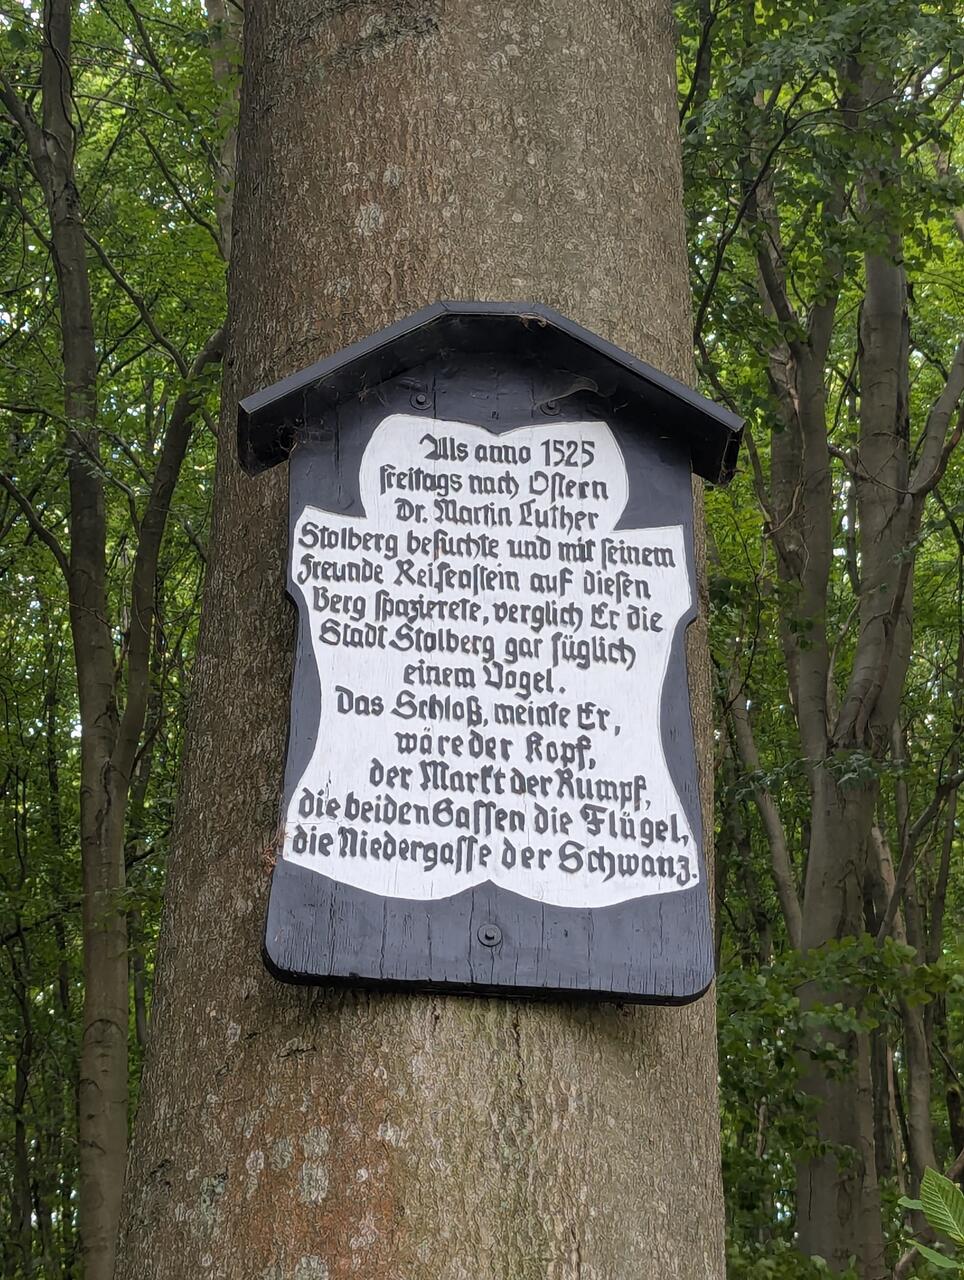 Als anno 1525
freitags nach Ostern
Dr. Martin Luther
Stolberg besuchte und mit seinem
Freunde Reifenstein auf diesen
Berg spazierete, verglich Er die
Stadt Stolberg gar füglich
einem Vogel.
Das Schloß, meinte Er,
wäre der Kopf,
der Markt der Rumpf,
die beiden Gassen die Flügel,
die Niedergasse der Schwanz.